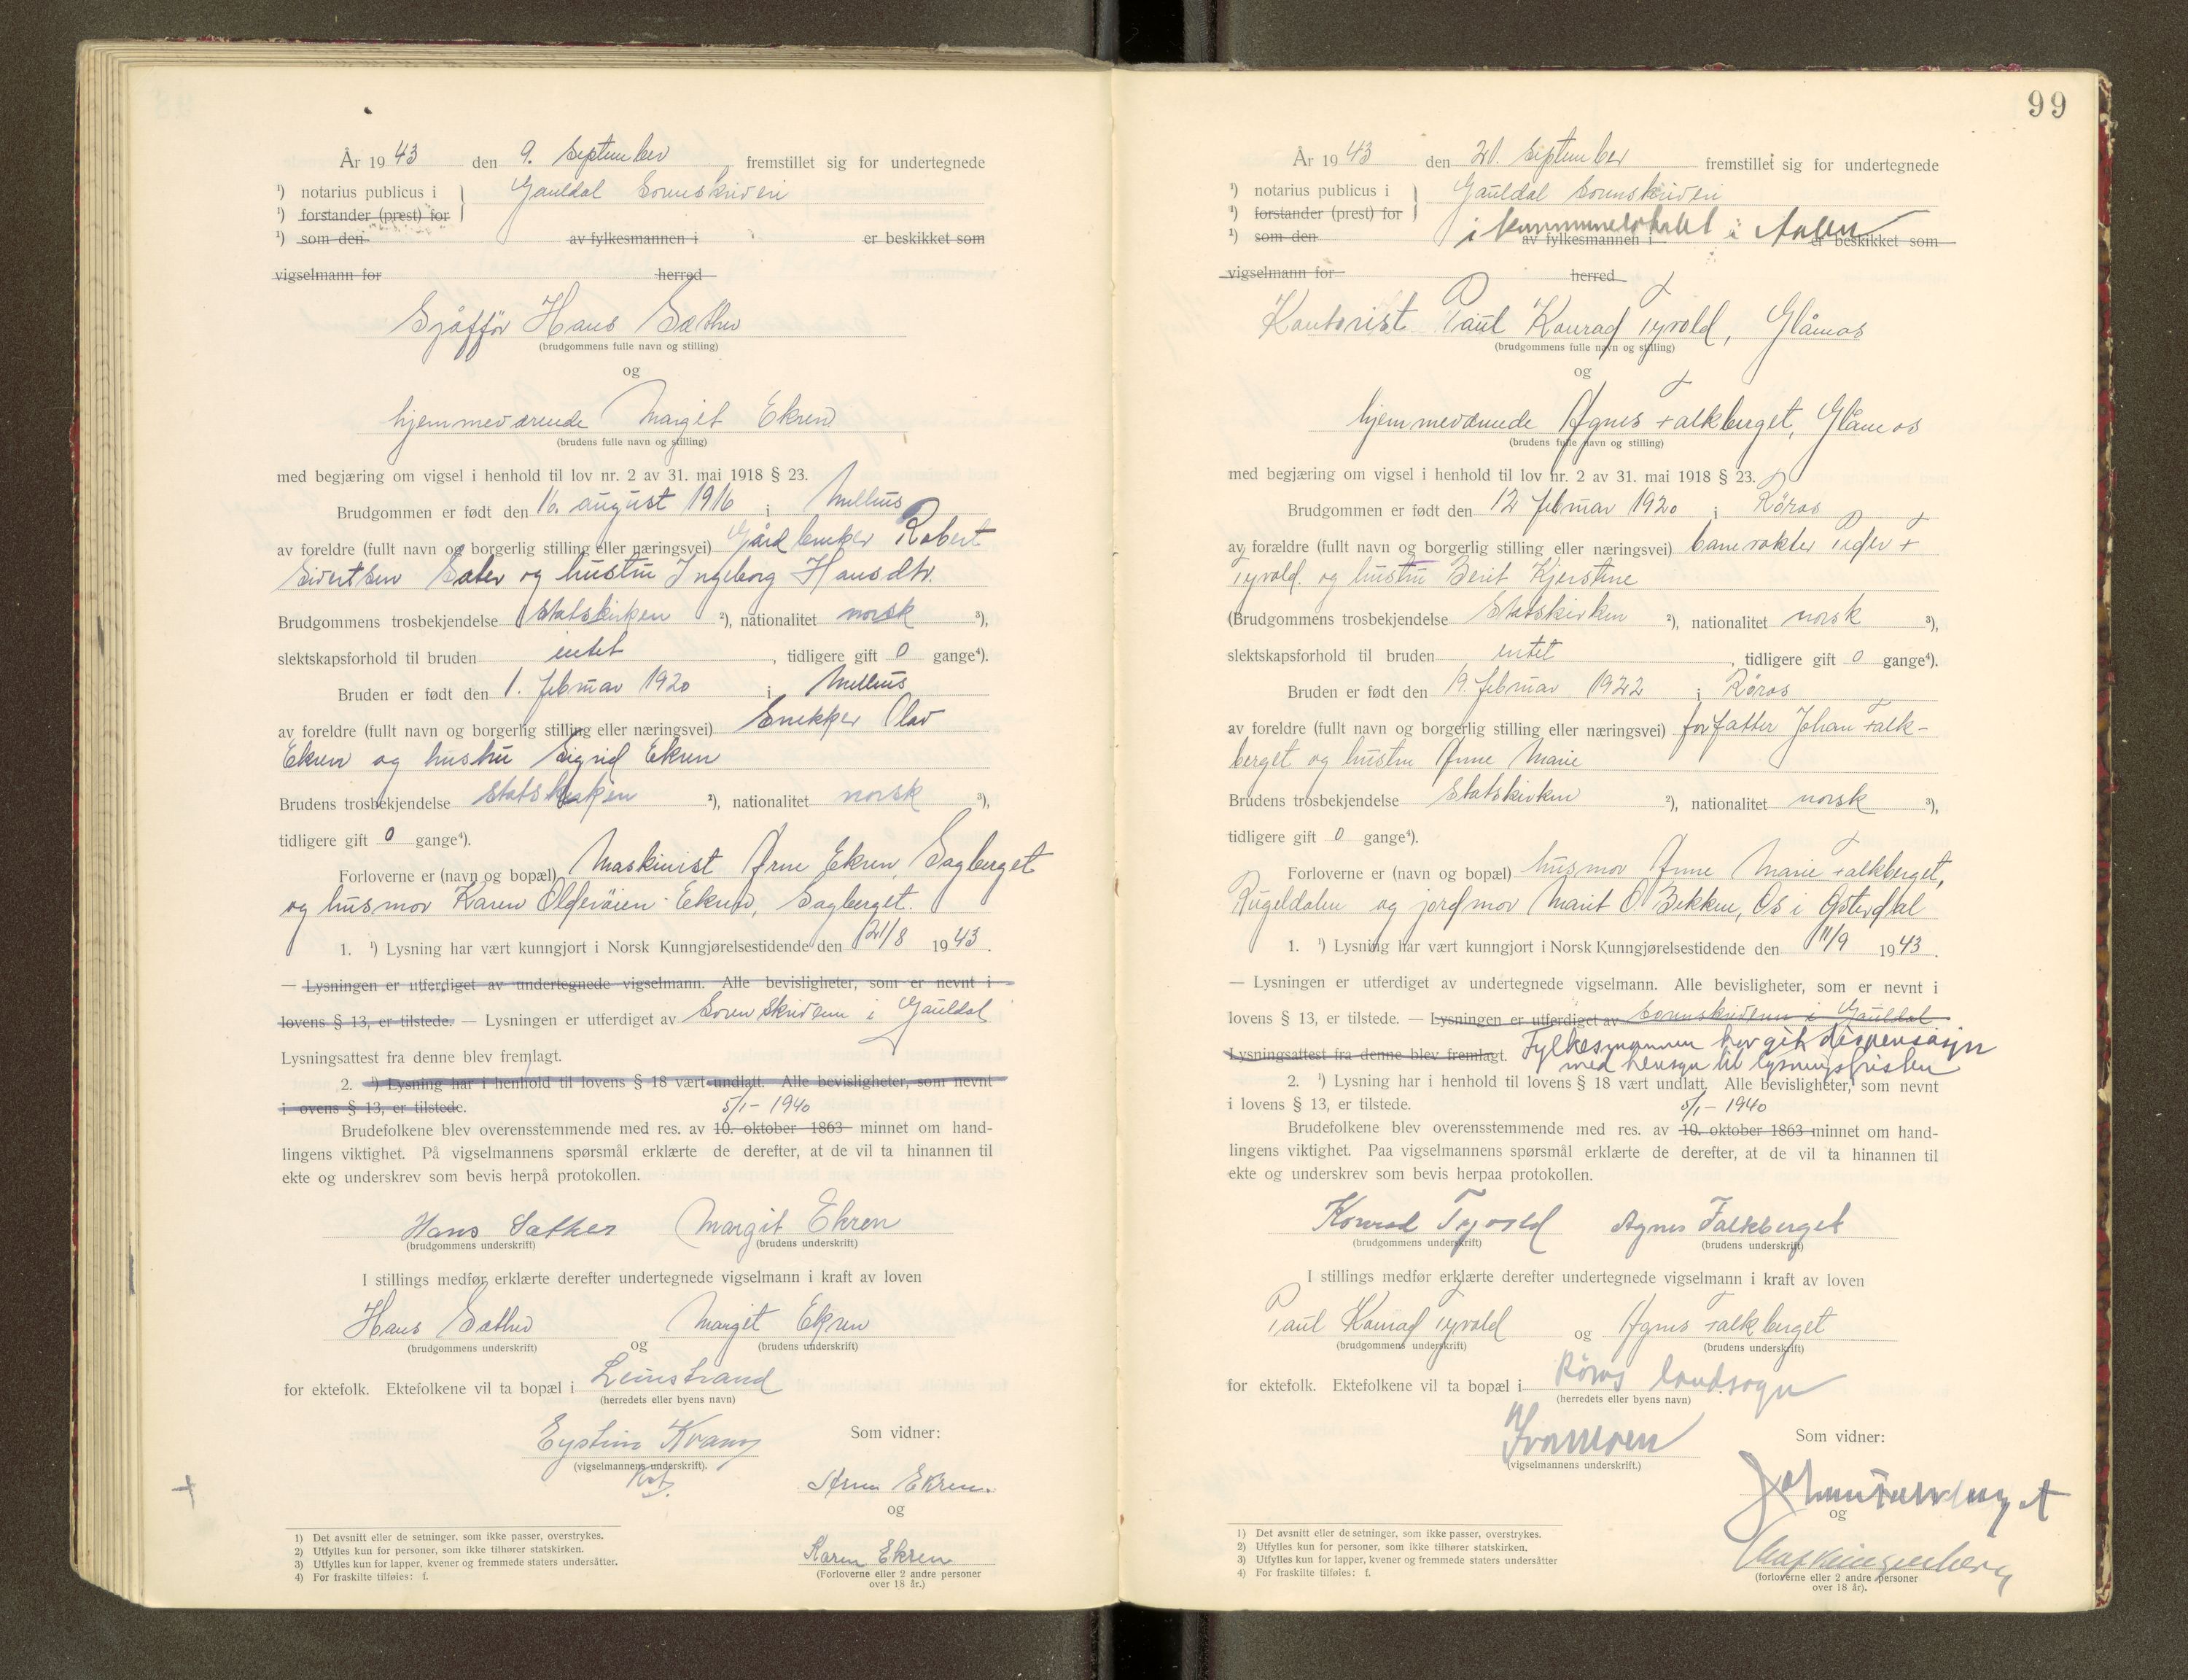 År 1943 den 9. September fremstillet sig for undertegnede
¹) notarius publicus i
Gauldal Sorenskriveri
¹) forstander (prest) for
¹) som den av fylkesmannen i er beskikket som
vigselmann for herred
Sjåffør Hans Sæther
(brudgommens fulle navn og stilling)
og
hjemmeværende Margit Ekren
(brudens fulle navn og stilling)
med begjæring om vigsel i henhold til lov nr. 2 av 31. mai 1918 § 23.
Brudgommen er født den 16. august 1916 i Melhus
av foreldre (fullt navn og borgerlig stilling eller næringsvei) Gårdbruker Robert
Sivertsen Sæter og hustru Ingeborg Hansdtr.
Brudgommens trosbekjendelse Statskirken ²), nationalitet norsk ³),
slektskapsforhold til bruden intet, tidligere gift 0 gange⁴).
Bruden er født den 1. februar 1920 i Melhus
av foreldre (fullt navn og borgerlig stilling eller næringsvei) Snekker Olav
Ekren og hustru Sigrid Ekren
Brudens trosbekjendelse Statskirken ²), nationalitet norsk ³),
tidligere gift 0 gange⁴).
Forloverne er (navn og bopæl) Maskinist Arne Ekren, Sagberget
og husmor Karen Ekren, Sagberget.
1. ¹) Lysning har vært kunngjort i Norsk Kunngjørelsestidende den 21/8 1943.
— Lysningen er utferdiget av undertegnede vigselmann. Alle bevisligheter, som er nevnt i
lovens § 13, er tilstede. — Lysningen er utferdiget av Sorenskriveren i Gauldal
Lysningsattest fra denne blev fremlagt.
2. ¹) Lysning har i henhold til lovens § 18 vært undlatt. Alle bevisligheter, som nevnt
i ovens § 13, er tilstede.
5/1 - 1940
Brudefolkene blev overensstemmende med res. av 10. oktober 1863 minnet om hand-
lingens viktighet. På vigselmannens spørsmål erklærte de derefter, at de vil ta hinannen til
ekte og underskrev som bevis herpå protokollen.
Hans Sæther Margit Ekren
(brudgommens underskrift) (brudens underskrift)
I stillings medfør erklærte derefter undertegnede vigselmann i kraft av loven
Hans Sæther og Margit Ekren
(brudgommens underskrift) (brudens underskrift)
for ektefolk. Ektefolkene vil ta bopæl i Leinstrand
(herredets eller byens navn)
Eystein
(vigselmannens underskrift).
Som vidner:
Arne Ekren.
og
Karen Ekren
(Forloverne eller 2 andre personer
over 18 år.)
1) Det avsnitt eller de setninger, som ikke passer, overstrykes.
2) Utfylles kun for personer, som ikke tilhører statskirken.
3) Utfylles kun for lapper, kvener og fremmede staters undersåtter.
4) For fraskilte tilføies: f.
99
År 1943 den 21. September fremstillet sig for undertegnede
¹) notarius publicus i
Gauldal Sorenskriveri
¹) forstander (prest) for
i kommunelokalet i Aalen
¹) som den av fylkesmannen i er beskikket som
vigselmann for herred
Kontorist Paul Konrad Tyvold, Glåmos
(brudgommens fulle navn og stilling)
og
hjemmeværende Agnes Falkberget, Glåmos
(brudens fulle navn og stilling)
med begjæring om vigsel i henhold til lov nr. 2 av 31. mai 1918 § 23.
Brudgommen er født den 12 februar 1920 i Røros
av forældre (fullt navn og borgerlig stilling eller næringsvei) banevokter Peder
Tyvold og hustru Berit Kjerstine
(Brudgommens trosbekjendelse Statskirken ²), nationalitet norsk ³),
slektskapsforhold til bruden intet, tidligere gift 0 gange⁴).
Bruden er født den 19. februar 1922 i Røros
av foreldre (fullt navn og borgerlig stilling eller næringsvei) forfatter Johan Falk-
berget og hustru Anne Marie
Brudens trosbekjendelse Statskirken ²), nationalitet norsk ³),
tidligere gift 0 gange⁴).
Forloverne er (navn og bopæl) husmor Anne Marie Falkberget,
Rugeldalen og jordmor Marit O. Bekken, Os i Østerdal
1. ¹) Lysning har vært kunngjort i Norsk Kunngjørelsestidende den 11/9 1943.
— Lysningen er utferdiget av undertegnede vigselmann. Alle bevisligheter, som er nevnt i
lovens § 13, er tilstede. — Lysningen er utferdiget av Sorenskriveren i Gauldal
Lysningsattest fra denne blev fremlagt. Fylkesmannen har gitt dispensasjon
med hensyn til lysningsfristen
2. ¹) Lysning har i henhold til lovens § 18 vært undlatt. Alle bevisligheter, som nevnt
i lovens § 13, er tilstede.
5/1 - 1940
Brudefolkene blev overensstemmende med res. av 10. oktober 1863 minnet om hand-
lingens viktighet. Paa vigselmannens spørsmål erklærte de derefter, at de vil ta hinannen til
ekte og underskrev som bevis herpaa protokollen.
Konrad Tyvold Agnes Falkberget
(brudgommens underskrift) (brudens underskrift)
I stillings medfør erklærte derefter undertegnede vigselmann i kraft av loven
Paul Konrad Tyvold og Agnes Falkberget
(brudgommens underskrift) (brudens underskrift)
for ektefolk. Ektefolkene vil ta bopæl i Røros landsogn
(herredets eller byens navn)
(vigselmannens underskrift.)
Som vidner:
Johan Falkberget
og
Olaf Klingenberg
(forloverne eller 2 andre personer
over 18 år).
1) Det avsnitt eller de setninger, som ikke passer, overstrykes.
2) Utfylles kun for personer, som ikke tilhører statskirken.
3) Utfylles kun for lapper, kvener og fremmede staters undersåtter
4) For fraskilte tilføies: f.